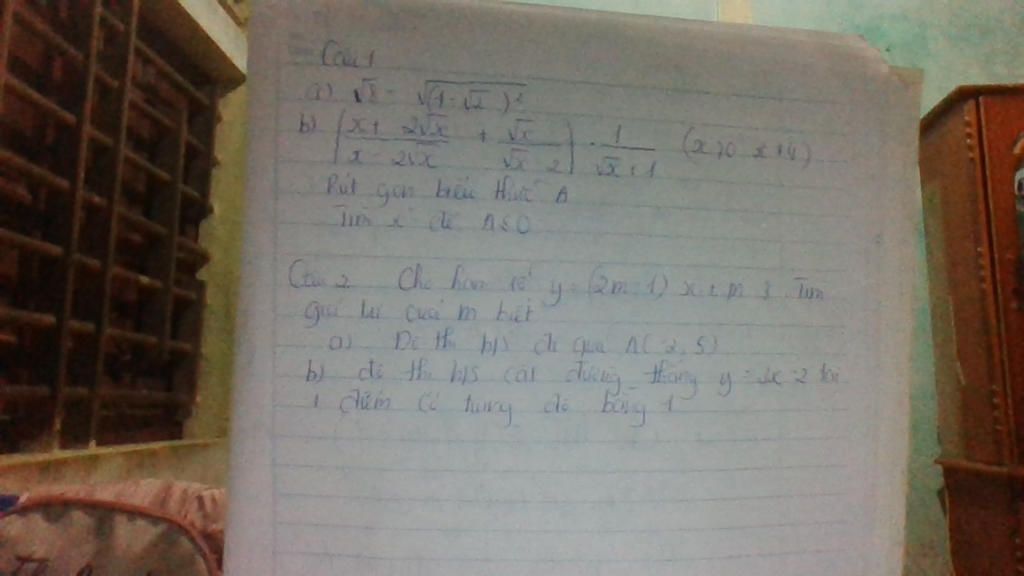 Câu 1
a) √8 - √(1-√2)²
b) (x+2√x / x-2√x + √x / √x 2) . 1 / √x+1 (x>0 x≠4)
Rút gọn biểu thức A
Tìm x để A≤0
Câu 2 Cho hàm số y=(2m-1) x+m 3. Tìm
giá trị của m biết
a) Đồ thị h/s đi qua A( 2, 5)
b) đồ thị h/s cắt đường thẳng y = 2x-2 tại
1 điểm có tung độ bằng 1